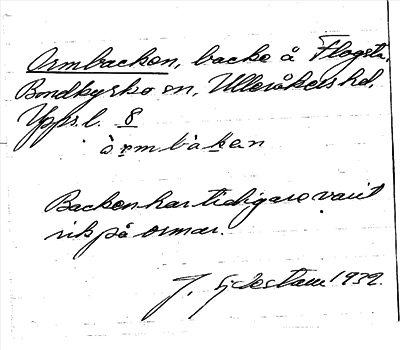 Ormbacken, backe å Flogsta,
Bondkyrko sn, Ulleråkers hd,
Upps. l. 8
òrmbàkan
Backen har tidigare varit
rik på ormar.
J. Götlestam 1932.